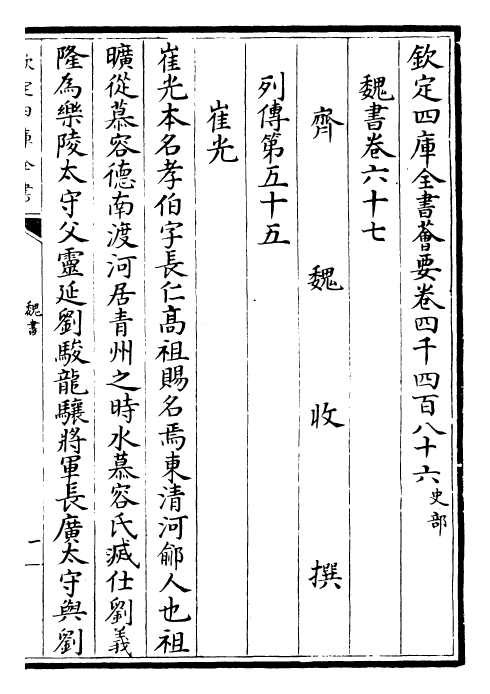 欽定四庫全書薈要卷四千四百八十六史部
魏書卷六十七
齊魏收撰
列傳第五十五
崔光
崔光本名孝伯字長仁髙祖賜名焉東清河鄃人也祖
曠從慕容德南渡河居青州之時水慕容氏滅仕劉義
隆為樂陵太守父靈延劉駿龍驤將軍長廣太守與劉
欽定四庫全書
魏書
一